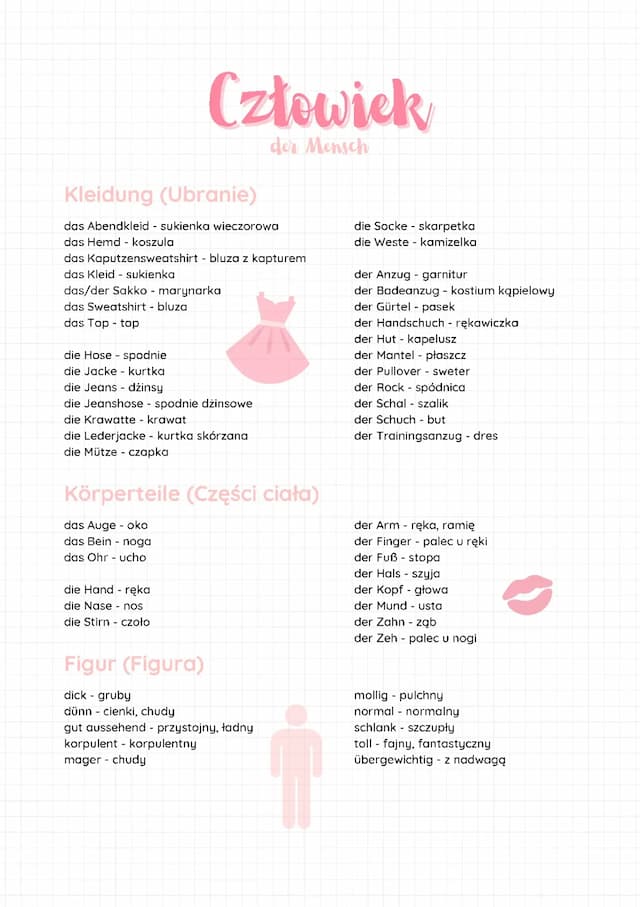 Człowiek
der Mensch
Kleidung (Ubranie)
das Abendkleid - sukienka wieczorowa
das Hemd - koszula
das Kaputzensweatshirt - bluza z kapturem
das Kleid - sukienka
das/der Sakko - marynarka
das Sweatshirt - bluza
das Top - top
die Hose - spodnie
die Jacke - kurtka
die Jeans - dżinsy
die Jeanshose - spodnie dżinsowe
die Krawatte - krawat
die Lederjacke - kurtka skórzana
die Mütze - czapka
die Socke - skarpetka
die Weste - kamizelka
der Anzug - garnitur
der Badeanzug - kostium kąpielowy
der Gürtel - pasek
der Handschuch - rękawiczka
der Hut - kapelusz
der Mantel - płaszcz
der Pullover - sweter
der Rock - spódnica
der Schal - szalik
der Schuch - but
der Trainingsanzug - dres
Körperteile (Części ciała)
das Auge - oko
das Bein - noga
das Ohr - ucho
die Hand - ręka
die Nase - nos
die Stirn - czoło
der Arm - ręka, ramię
der Finger - palec u ręki
der Fuß - stopa
der Hals - szyja
der Kopf - głowa
der Mund - usta
der Zahn - ząb
der Zeh - palec u nogi
Figur (Figura)
dick - gruby
dünn - cienki, chudy
gut aussehend - przystojny, ładny
korpulent - korpulentny
mager - chudy
mollig - pulchny
normal - normalny
schlank - szczupły
toll - fajny, fantastyczny
übergewichtig - z nadwagą